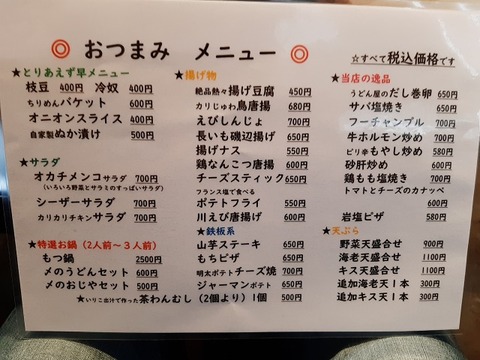 ◎ おつまみ メニュー ◎
☆すべて税込価格です
★とりあえず早メニュー
枝豆 400円 冷奴 400円
ちりめんバケット 600円
オニオンスライス 400円
自家製ぬか漬け 500円
★サラダ
オカチメンコサラダ 700円
(いろいろ野菜とサラミのすっぱいサラダ)
シーザーサラダ 700円
カリカリチキンサラダ 700円
★特選お鍋(2人前~3人前)
もつ鍋 2500円
〆のうどんセット 600円
〆のおじやセット 500円
★いりこ出汁で作った茶わんむし(2個より)1個 500円
★揚げ物
絶品熱々揚げ豆腐 450円
カリじゅわ鳥唐揚 680円
えびしんじょ 700円
長いも磯辺揚げ 650円
揚げナス 550円
鶏なんこつ唐揚 600円
チーズスティック 650円
フランス塩で食べる
ポテトフライ 550円
川えび唐揚げ 600円
★鉄板系
山芋ステーキ 650円
もちピザ 650円
明太ポテトチーズ焼 700円
ジャーマンポテト 650円
★当店の逸品
うどん屋のだし巻卵 650円
サバ塩焼き 650円
フーチャンプル 700円
牛ホルモン炒め 700円
ピリ辛もやし炒め 580円
砂肝炒め 600円
鶏もも塩焼き 700円
トマトとチーズのカナッペ
600円
岩塩ピザ 580円
★天ぷら
野菜天盛合せ 900円
海老天盛合せ 1100円
キス天盛合せ 1100円
追加海老天1本 300円
追加キス天1本 300円